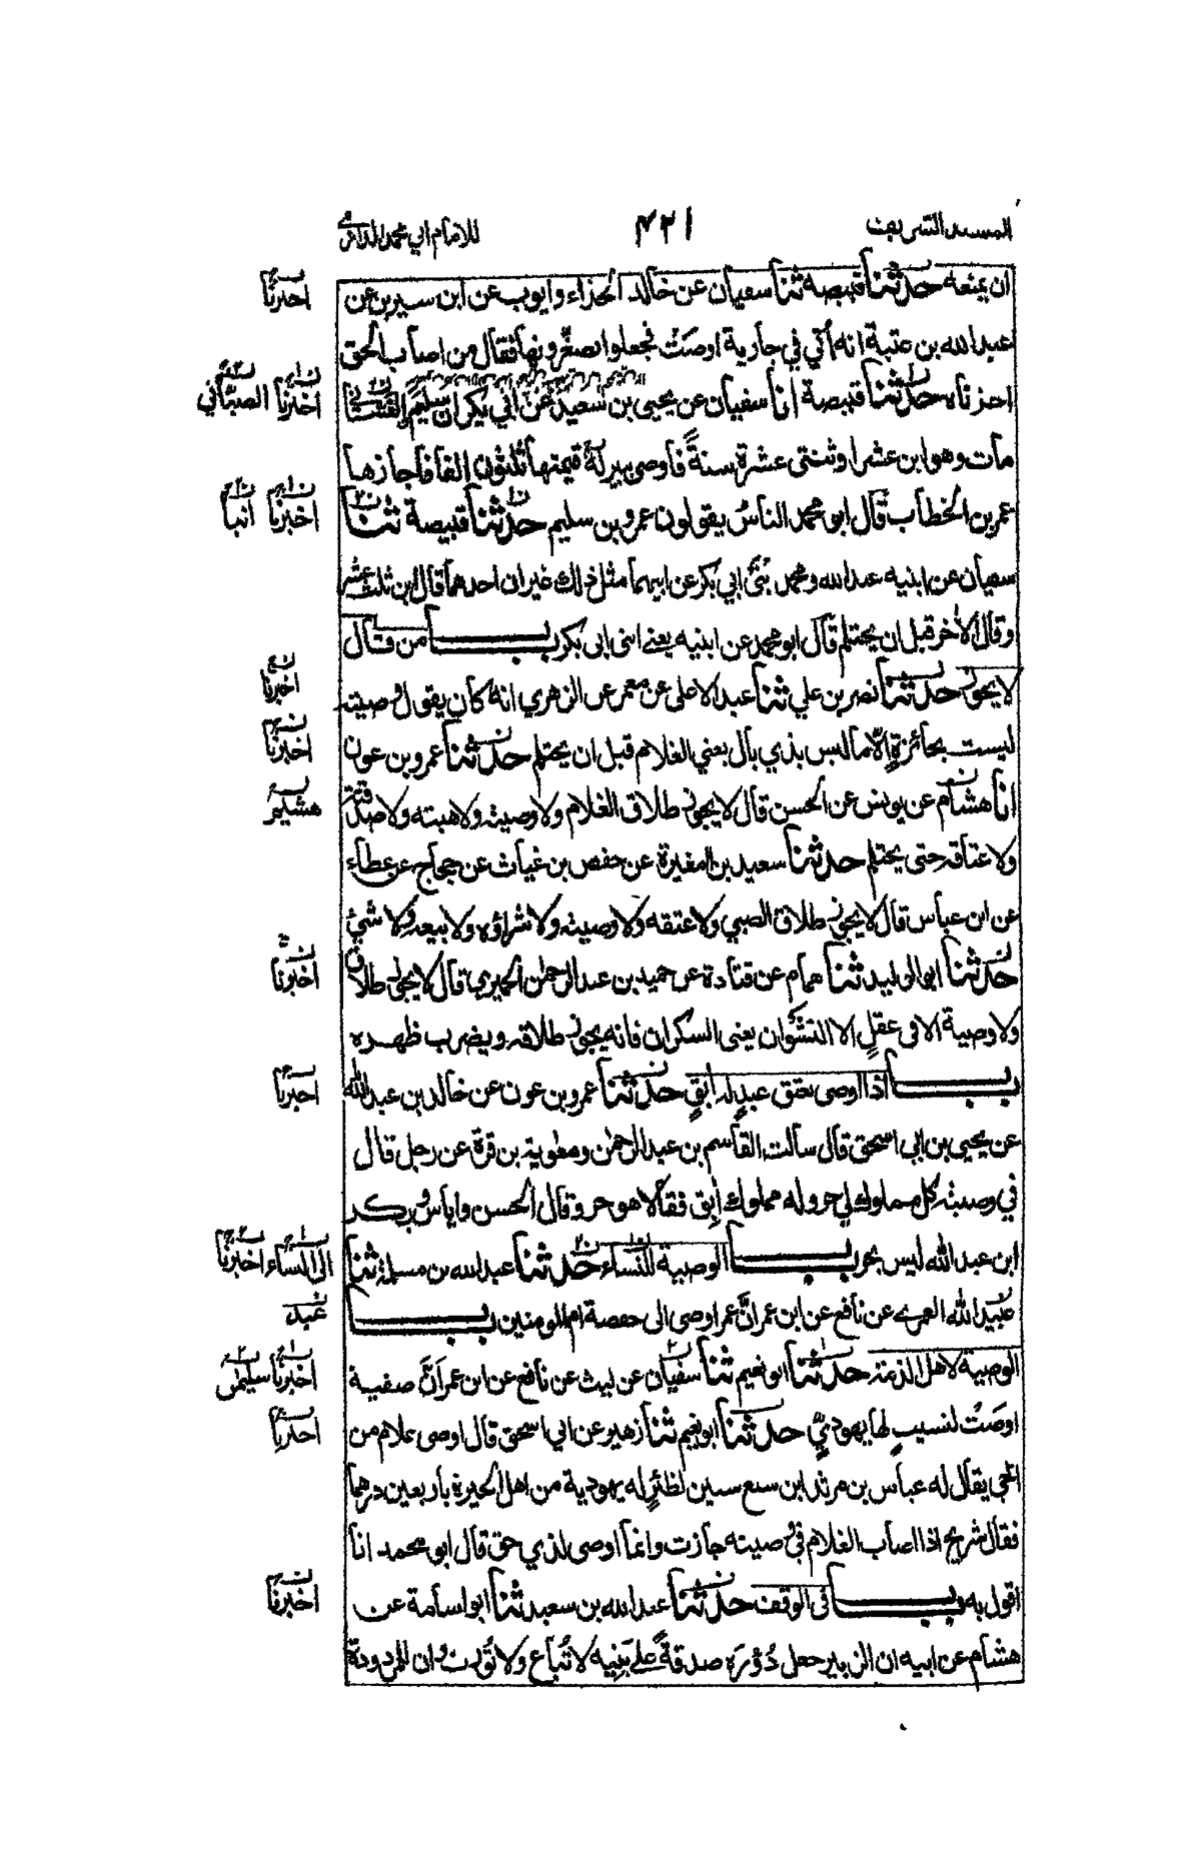 المسند الشريف ۴۲۱ للامام ابي محمد الدارمي
ان يمنعه حدثنا قبيصة ثنا سفيان عن خالد الحذاء وايوب عن ابن سيرين عن
اخبرنا
عبد الله بن عتبة انه أتي في جارية اوصَتْ فجعلوا يصغّرونها فقال من اصاب الحق
اجزناه حدثنا قبيصة انا سفيان عن يحيى بن سعيد عن ابي بكر ان سليم الغساني
اخبرنا الصبّاني
مات وهو ابن عشر او ثنتي عشرة سنةً فأوصى ببيرلهٗ قيمتها ثلثون الفا فاجازها
عمر بن الخطاب قال ابو محمد الناسُ يقولون عمرو بن سليم حدثنا قبيصة ثنا
اخبرنا انبا
سفيان عن ابنيه عبد الله ومحمد بُنَّى ابي بكر عن ابيهما مثل ذلك غير ان احدهما قال ابن ثلث عشر
وقال الأخر قبل ان يحتلم قال ابو محمد عن ابنيه يعني ابنى ابى بكر باب من قال
لا يجوز حدثنا نصر بن علي ثنا عبد الاعلى عن معمر عن الزهري انه كان يقول وصيته
اخبرنا
ليست بجائزةٍ الّا ما ليس بذي بال يعني الغلام قبل ان يحتلم حدثنا عمرو بن عون
اخبرنا
انا هشام عن يونس عن الحسن قال لا يجوز طلاق الغلام ولا وصيته ولا هبته ولا صدقته
هشيم
ولا عتاقه حتى يحتلم حدثنا سعيد بن المغيرة عن حفص بن غياث عن حجاج عن عطاء
عن ابن عباس قال لا يجوز طلاق الصبي ولا عتقه ولا وصيته ولا شراؤه ولا بيعه ولا شيْ
حدثنا ابو الوليد ثنا همام عن قتادة عن حميد بن عبد الرحمن الحميري قال لا يجوز طلاق
اخبرنا
ولا وصية الا في عقلٍ الا النشوان يعنى السكران فانه يجوز طلاقه ويضرب ظهره
باب اذا اوصى بعتق عبدٍ له ابقٍ حدثنا عمرو بن عون عن خالد بن عبد الله
اخبرنا
عن يحيى بن ابي اسحق قال سألت القاسم بن عبد الرحمن ومعٰوية بن قرة عن رجل قال
في وصيته كل مملوك لي حر وله مملوك اٰبق فقالا هو حر وقال الحسن واياس وبكر
ابن عبد الله ليس بحر باب الوصية للنساء حدثنا عبد الله بن مسلمة ثنا
الى النساء اخبرنا
عبيد الله العمرى عن نافع عن ابن عمر انَّ عمر اوصى الى حفصة ام المومنين باب
عبد
الوصية لاهل الذمة حدثنا ابو نعيم ثنا سفيان عن ليث عن نافع عن ابن عمر اَنَّ صفية
اخبرنا سليمٰن
اوصَتْ لنسيبٍ لها يهوديٍّ حدثنا ابو نعيم ثنا زهير عن ابي اسحق قال اوصى غلام من
اخبرنا
الحي يقال له عباس بن مرثد ابن سبع سنين لظئرٍ له يهودية من اهل الحيرة باربعين درهما
فقال شريح اذا اصاب الغلام في وصيته جازت وانما اوصى لذي حق قال ابو محمد انا
اقول به باب في الوقف حدثنا عبد الله بن سعيد ثنا ابو اسامة عن
اخبرنا
هشام عن ابيه ان الزبير جعل دُوْرَه صدقةً على بَنِيه لا تُباع ولا تُورث وان للمردودة